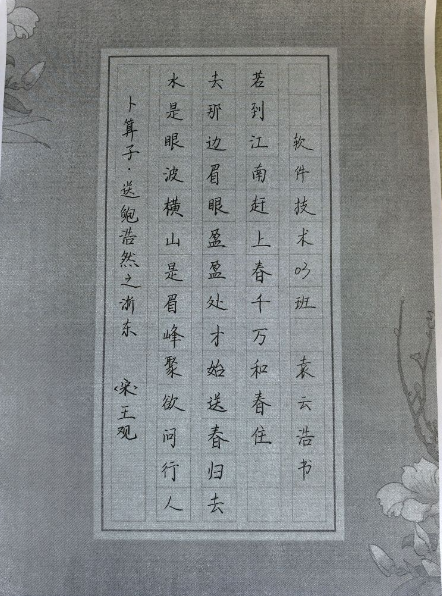 卜算子·送鲍浩然之浙东 〈宋〉王观
水是眼波横山是眉峰聚欲问行人
去那边眉眼盈盈处才始送春归去
若到江南赶上春千万和春住
软件技术03班 袁云浩书